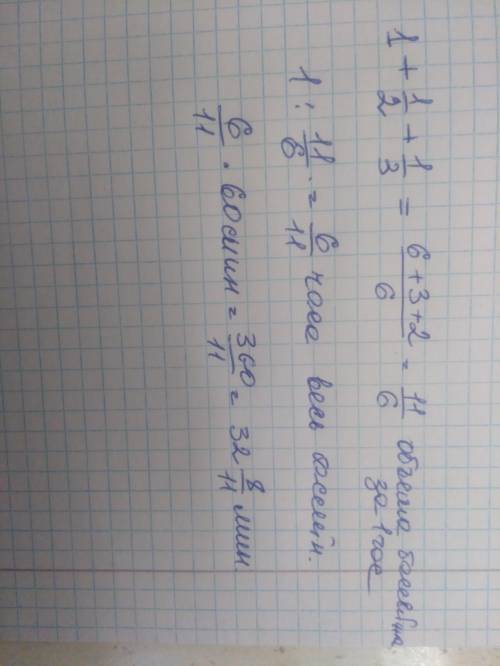 1 + 1/2 + 1/3 = (6+3+2)/6 = 11/6 объема бассейна за 1 час
1 : 11/6 = 6/11 часа весь бассейн.
6/11 · 60 мин = 360/11 = 32 8/11 мин.